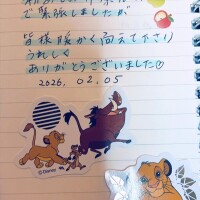 で緊張しましたが
皆様暖かく向えて下さり
うれしく
ありがとうございました♡
2026. 02. 05
©Disney